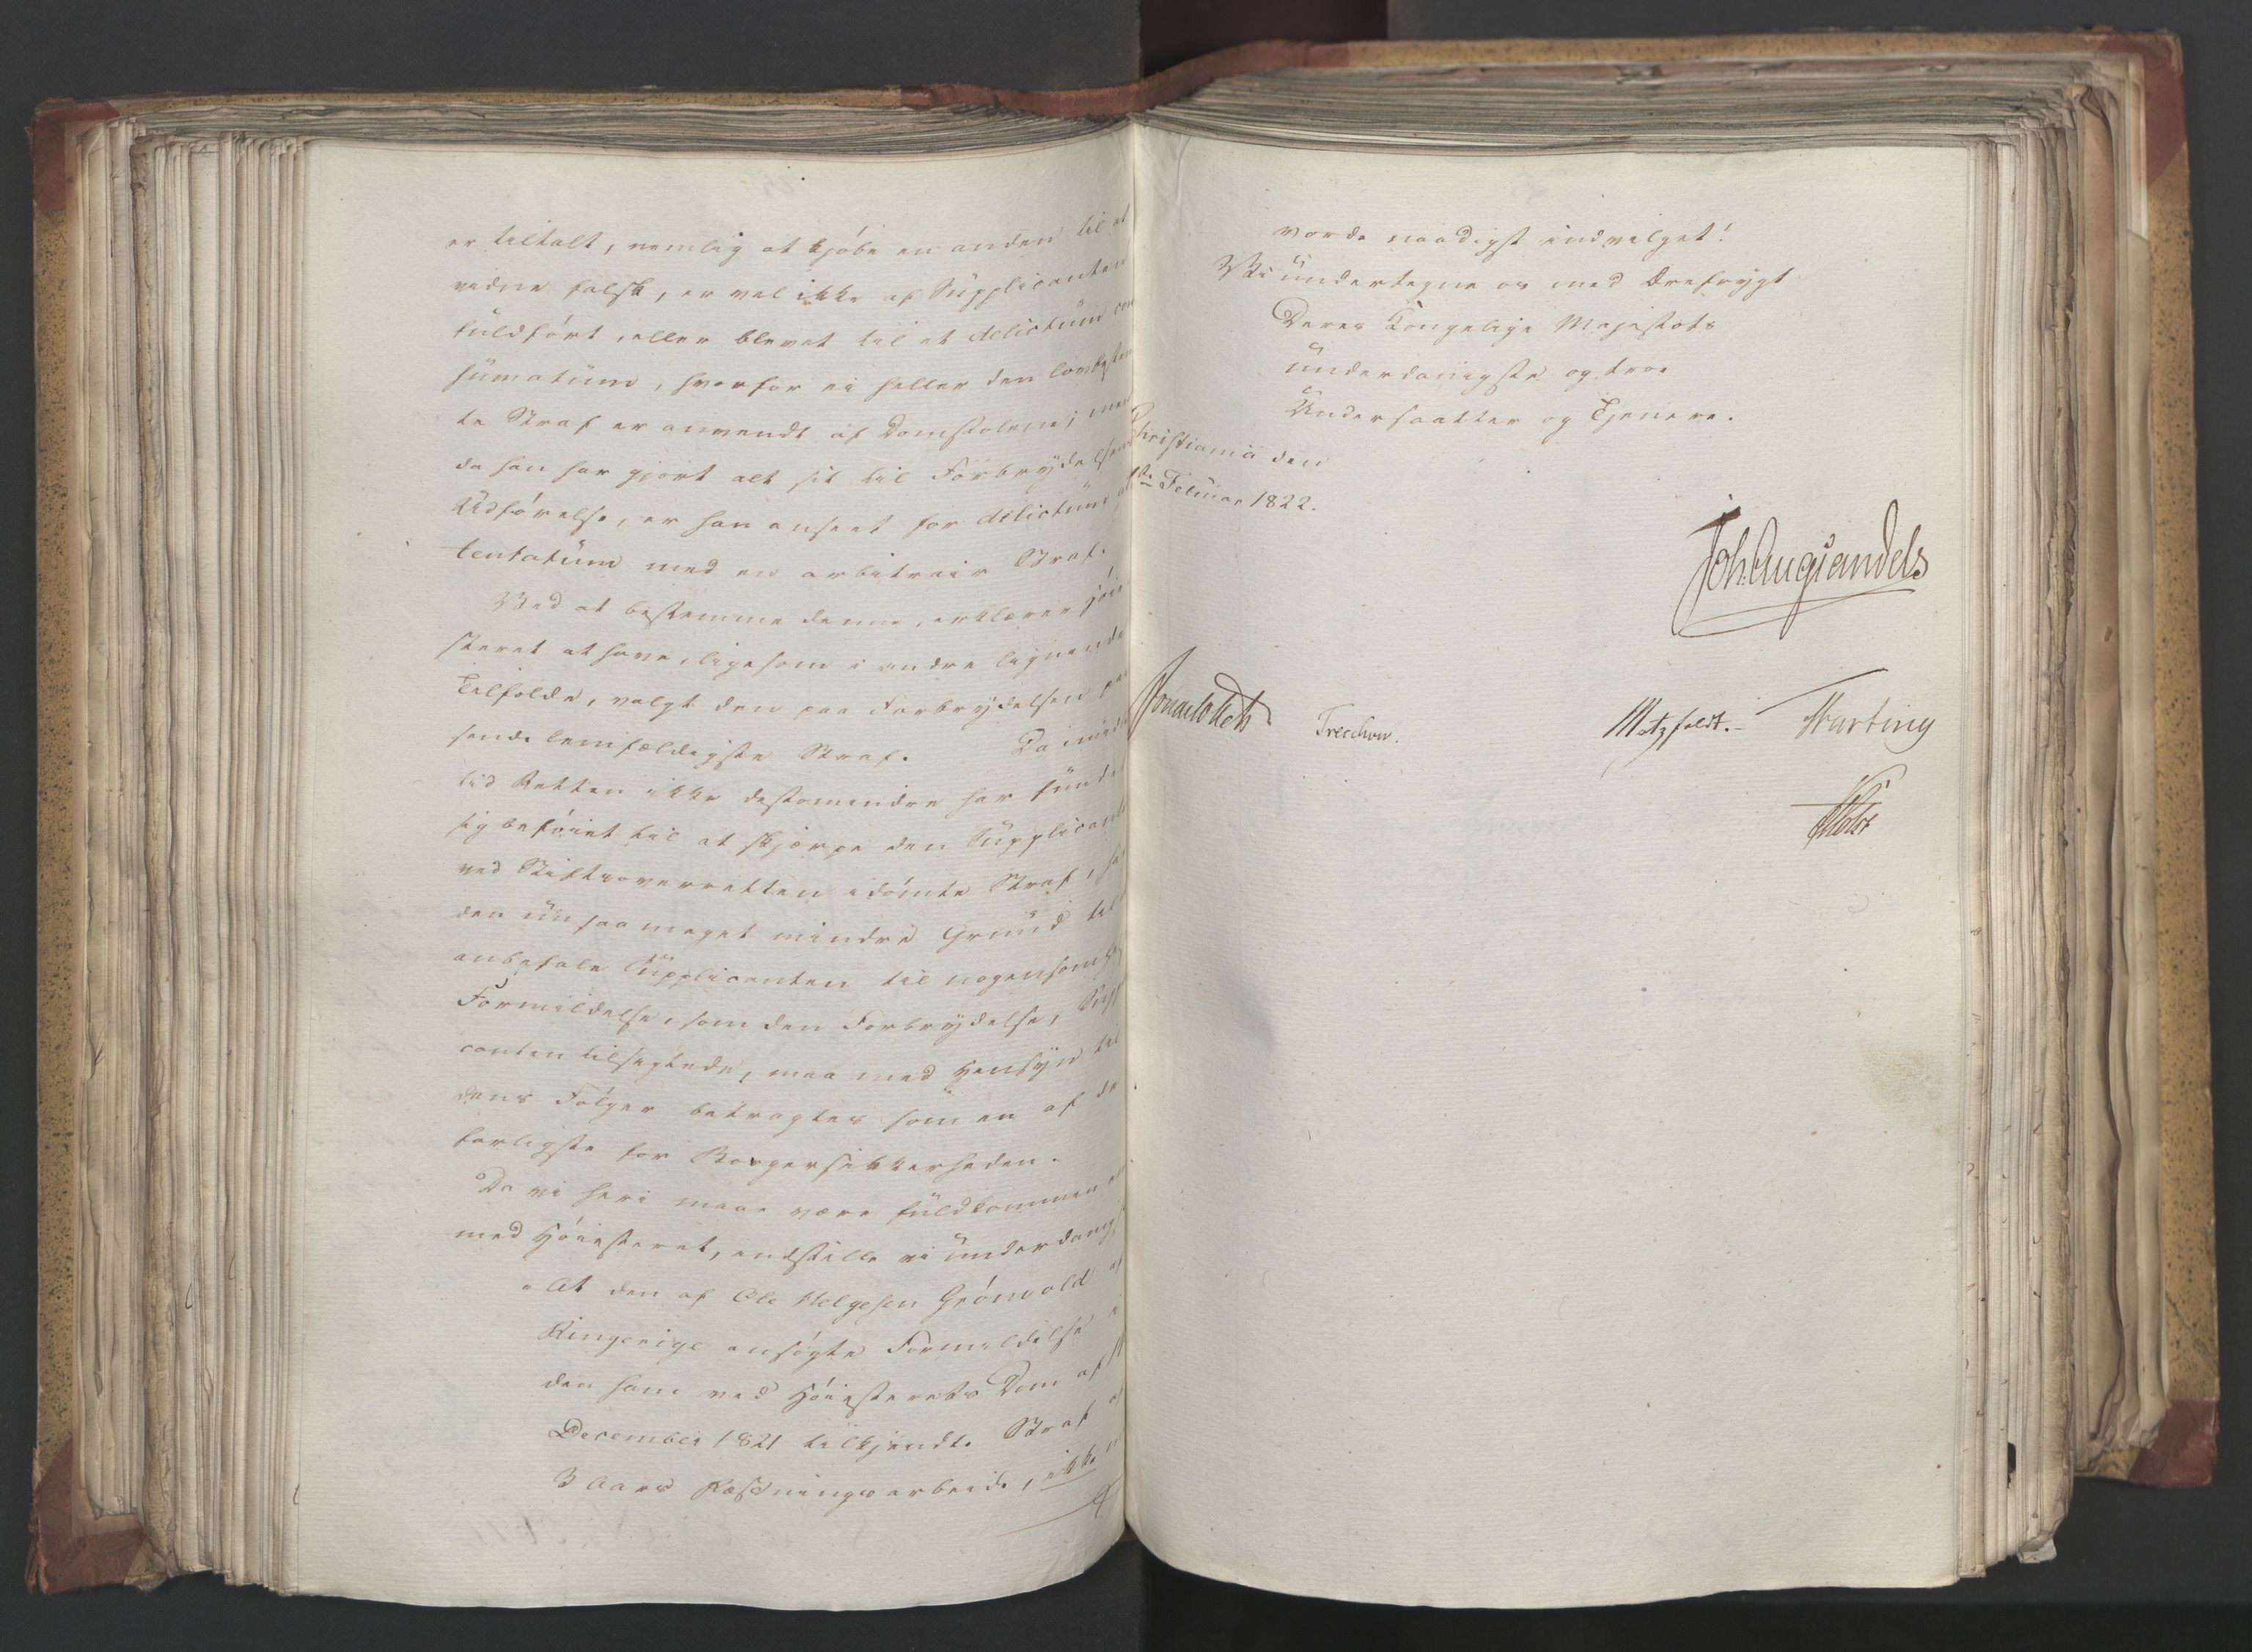 er tiltalt, nemlig at kjöbe en anden til at
vidne falsk, er vel ikke af Supplicanten
fuldfört, eller blevet til et delictum con
sumatum, hvorfor ei heller den lovbestem
te Straf er anvendt af Domstolene; men
da han har gjort alt sit til Forbrydelsens
Udförelse, er han anseet for delictum at
tentatum med en arbitrair Straf.
Ved at bestemme denne, erklærer Höie
steret at have, ligesom i andre lignende
Tilfælde, valgt den paa Forbrydelsen pas
sende lemfældigste Straf. Da imid
lid Retten ikke destomindre har fundet
sig beföiet til at skjærpe den Supplicanten
ved Stiftsoverretten idömte Straf, har
den nu saa meget mindre Grund til
anbefale Supplicanten til nogensomhelst
Formildelse, som den Forbrydelse, Suppli
canten tilsigtede, maa med Hensyn til
dens Fölger betragtes som en af de
farligste for Borgersikkerheden.
Da vi heri maae være fuldkommen
med Höiesteret, indstille vi underdanigst
"At den af Ole Helgesen Grönvold af
Ringerige ansögte Formildelse i
den ham ved Höiesterets Dom af
December 1821 tilkjendte Straf af
3 Aars Fæstningsarbeide, ikke
vorde naadigst indvilget!
Vi undertegne os med Ærefrygt
Deres Kongelige Majestæts
underdanigste og troe
Undersaatter og Tjenere.
Christiania den
Februar 1822.
Joh. Aug. Sandels
Sommerhielm Treschow. Motzfeldt. Hartung
Holst